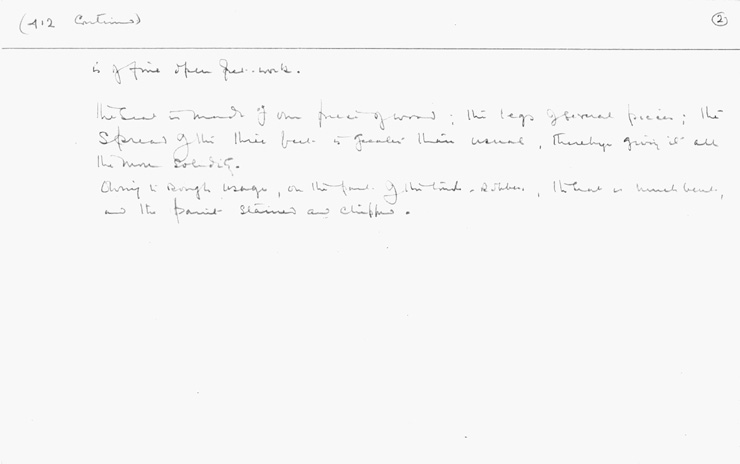 (412 Continued) 2
is of fine open fret-work.
The seat is made of one piece of wood; the legs of several pieces; the
spread of the three feet is greater than usual, thereby giving it all
the more solidity.
Owing to rough usage, on the part of the tomb-robbers, the seat is much bent,
and the paint stained and chipped.